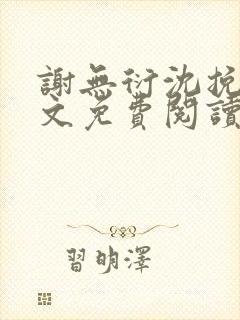 謝無衍沈挽
文免費閱讀
習明澤